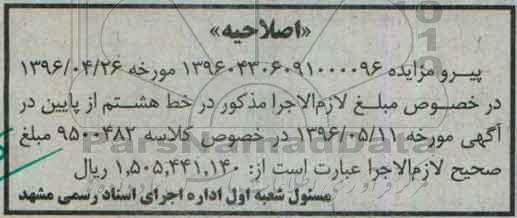 «اصلاحیه»
پیرو مزایده ۱۳۹۶۰۴۳۰۶۰۹۱۰۰۰۰۹۶ مورخه ۱۳۹۶/۰۴/۲۶
در خصوص مبلغ لازم‌الاجرا مذکور در خط هشتم از پایین در
آگهی مورخه ۱۳۹۶/۰۵/۱۱ در خصوص کلاسه ۹۵۰۰۴۸۲ مبلغ
صحیح لازم‌الاجرا عبارت است از: ۱,۵۰۵,۴۴۱,۱۴۰ ریال
مسئول شعبه اول اداره اجرای اسناد رسمی مشهد
ParsNamadData